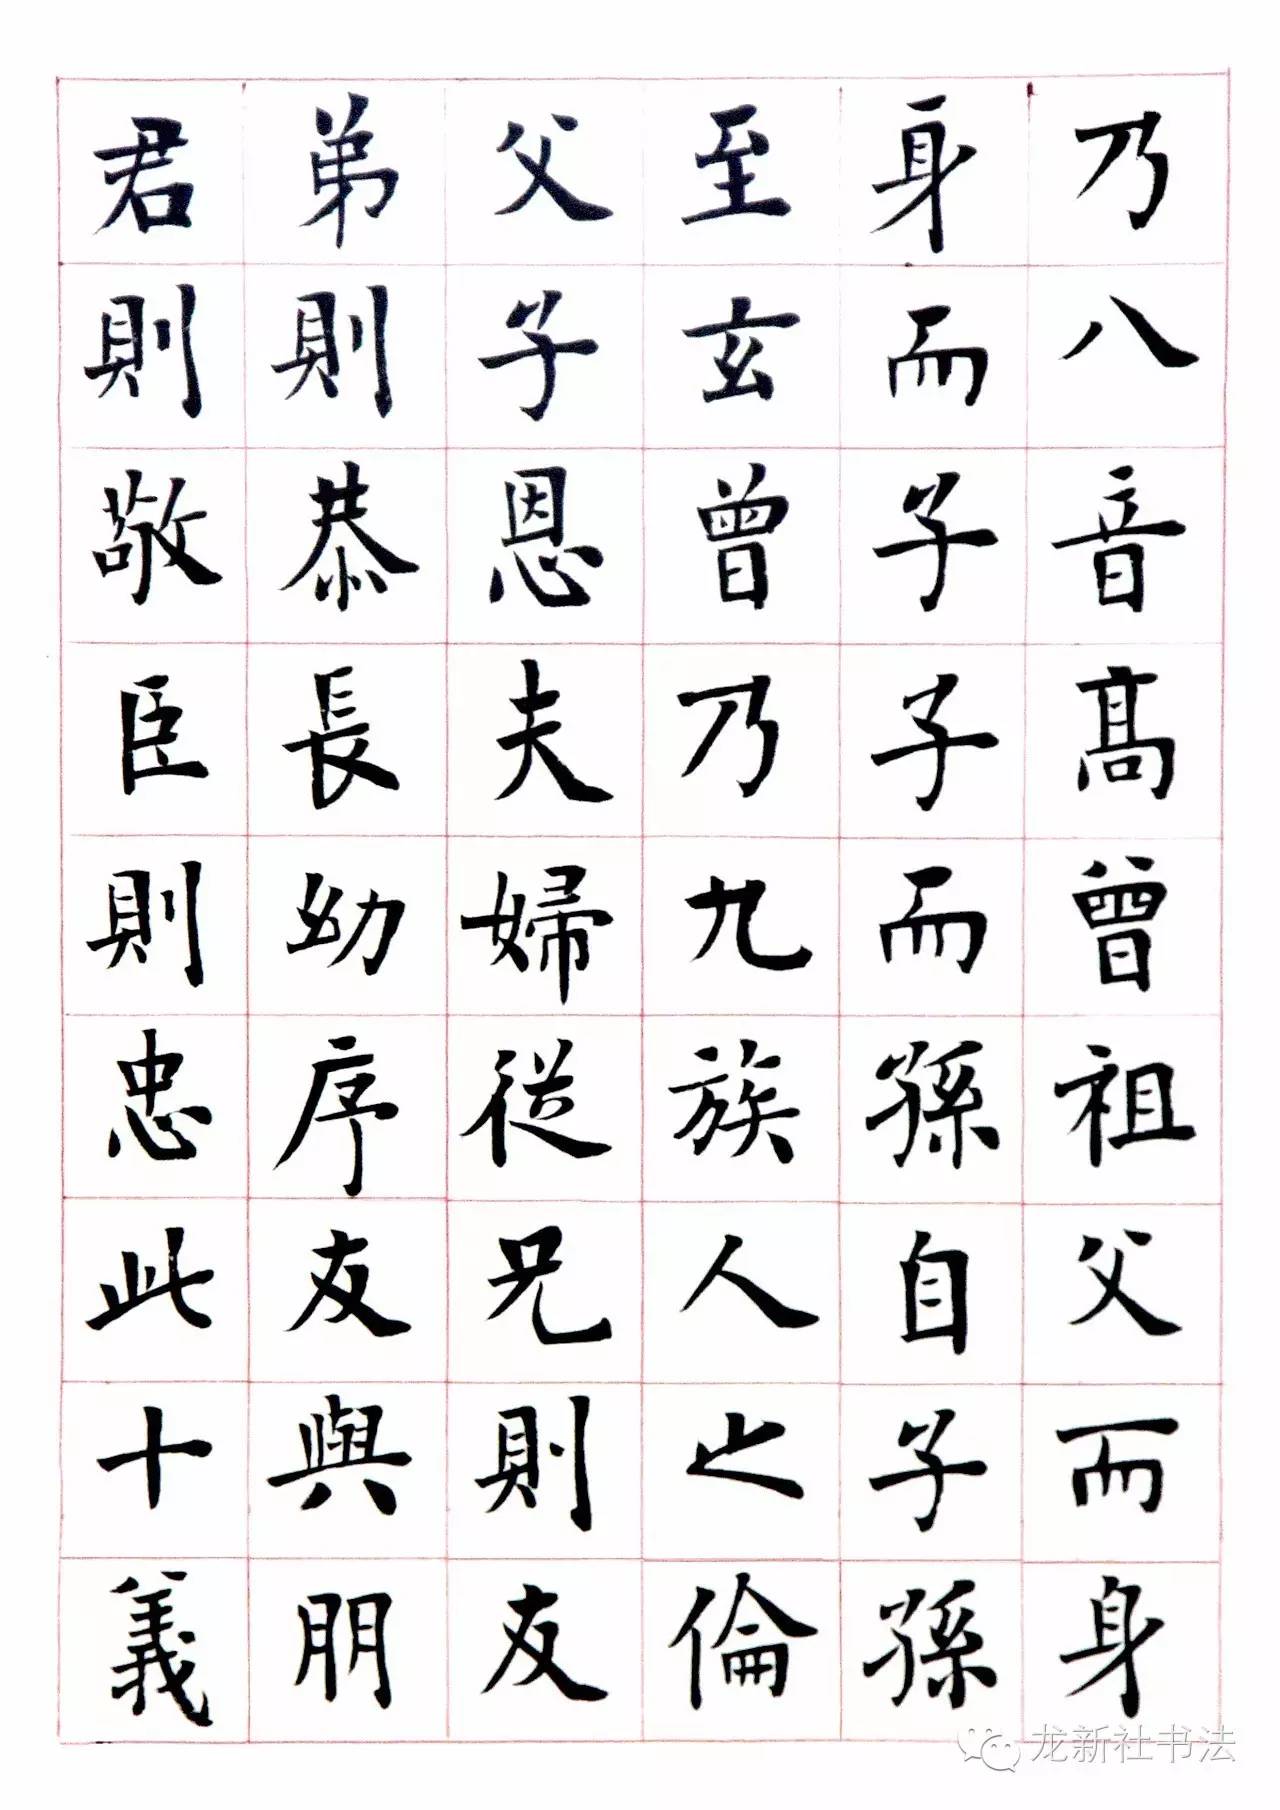 乃八音高曾祖父而身
身而子子而孫自子孫
至玄曾乃九族人之倫
父子恩夫婦從兄則友
弟則恭長幼序友與朋
君則敬臣則忠此十義
龙新社书法